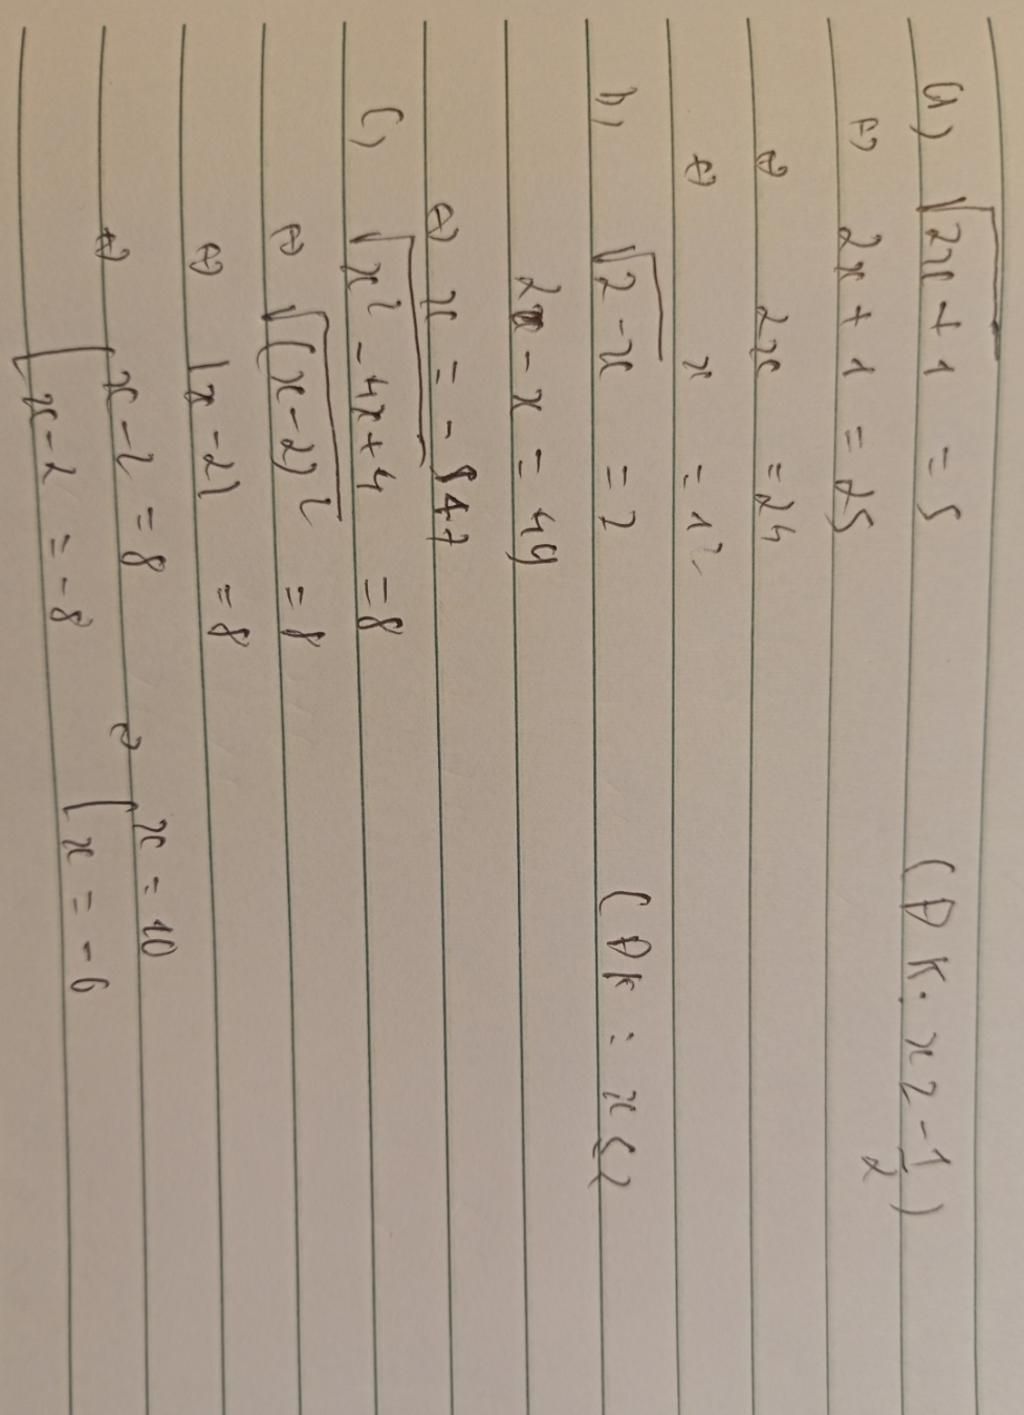 a) √(2x+1) = 5 (ĐK: x ≥ -1/2)
⇔ 2x + 1 = 25
⇔ 2x = 24
⇔ x = 12
b) √(2-x) = 7 (ĐK: x ≤ 2
2 - x = 49
⇔ x = - 47
c) √(x² - 4x + 4) = 8
⇔ √((x-2)²) = 8
⇔ |x-2| = 8
⇔ [ x-2 = 8 ⇔ [ x = 10
x-2 = -8 x = -6